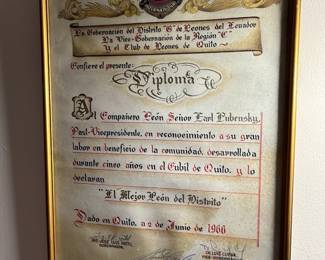 La Gobernación del Distrito "G" de Leones del Ecuador
La Vice-Gobernación de la Región "C"
Y el Club de Leones de Quito
Confiere el presente:
Diploma
Al Compañero León Señor Earl Rubensky,
Past-Vicepresidente, en reconocimiento a su gran
labor en beneficio de la comunidad, desarrollada
durante cinco años en el Cubil de Quito, y lo
declaran
"El Mejor León del Distrito"
Dado en Quito, a 2 de Junio de 1966